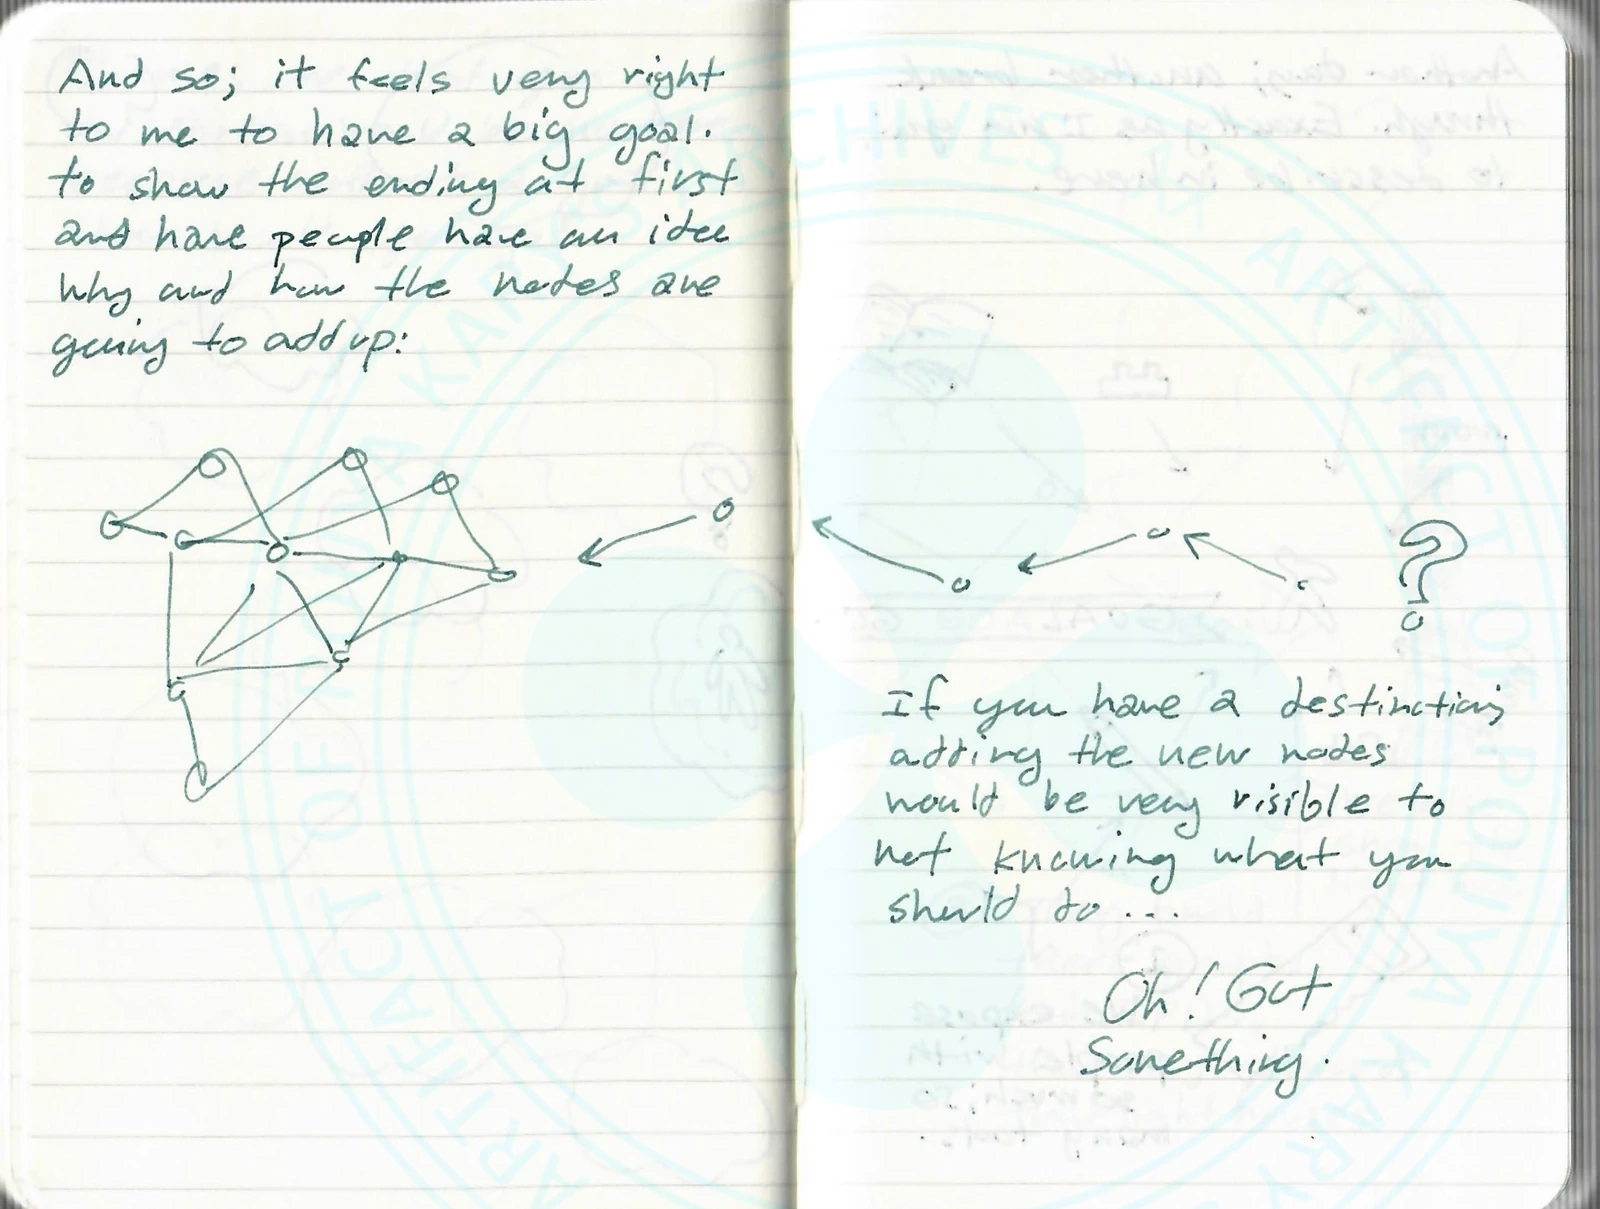 And so; it feels very right
to me to have a big goal.
to show the ending at first
and have people have an idea
why and how the nodes are
going to add up:
?
If you have a destination;
adding the new nodes
would be very visible to
not knowing what you
should do ...
Oh! Got
Something.
ARTIFACT OF POUYA KARY'S ARCHIVES